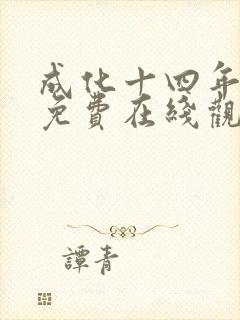 成化十四年
免費在綫觀
譚青